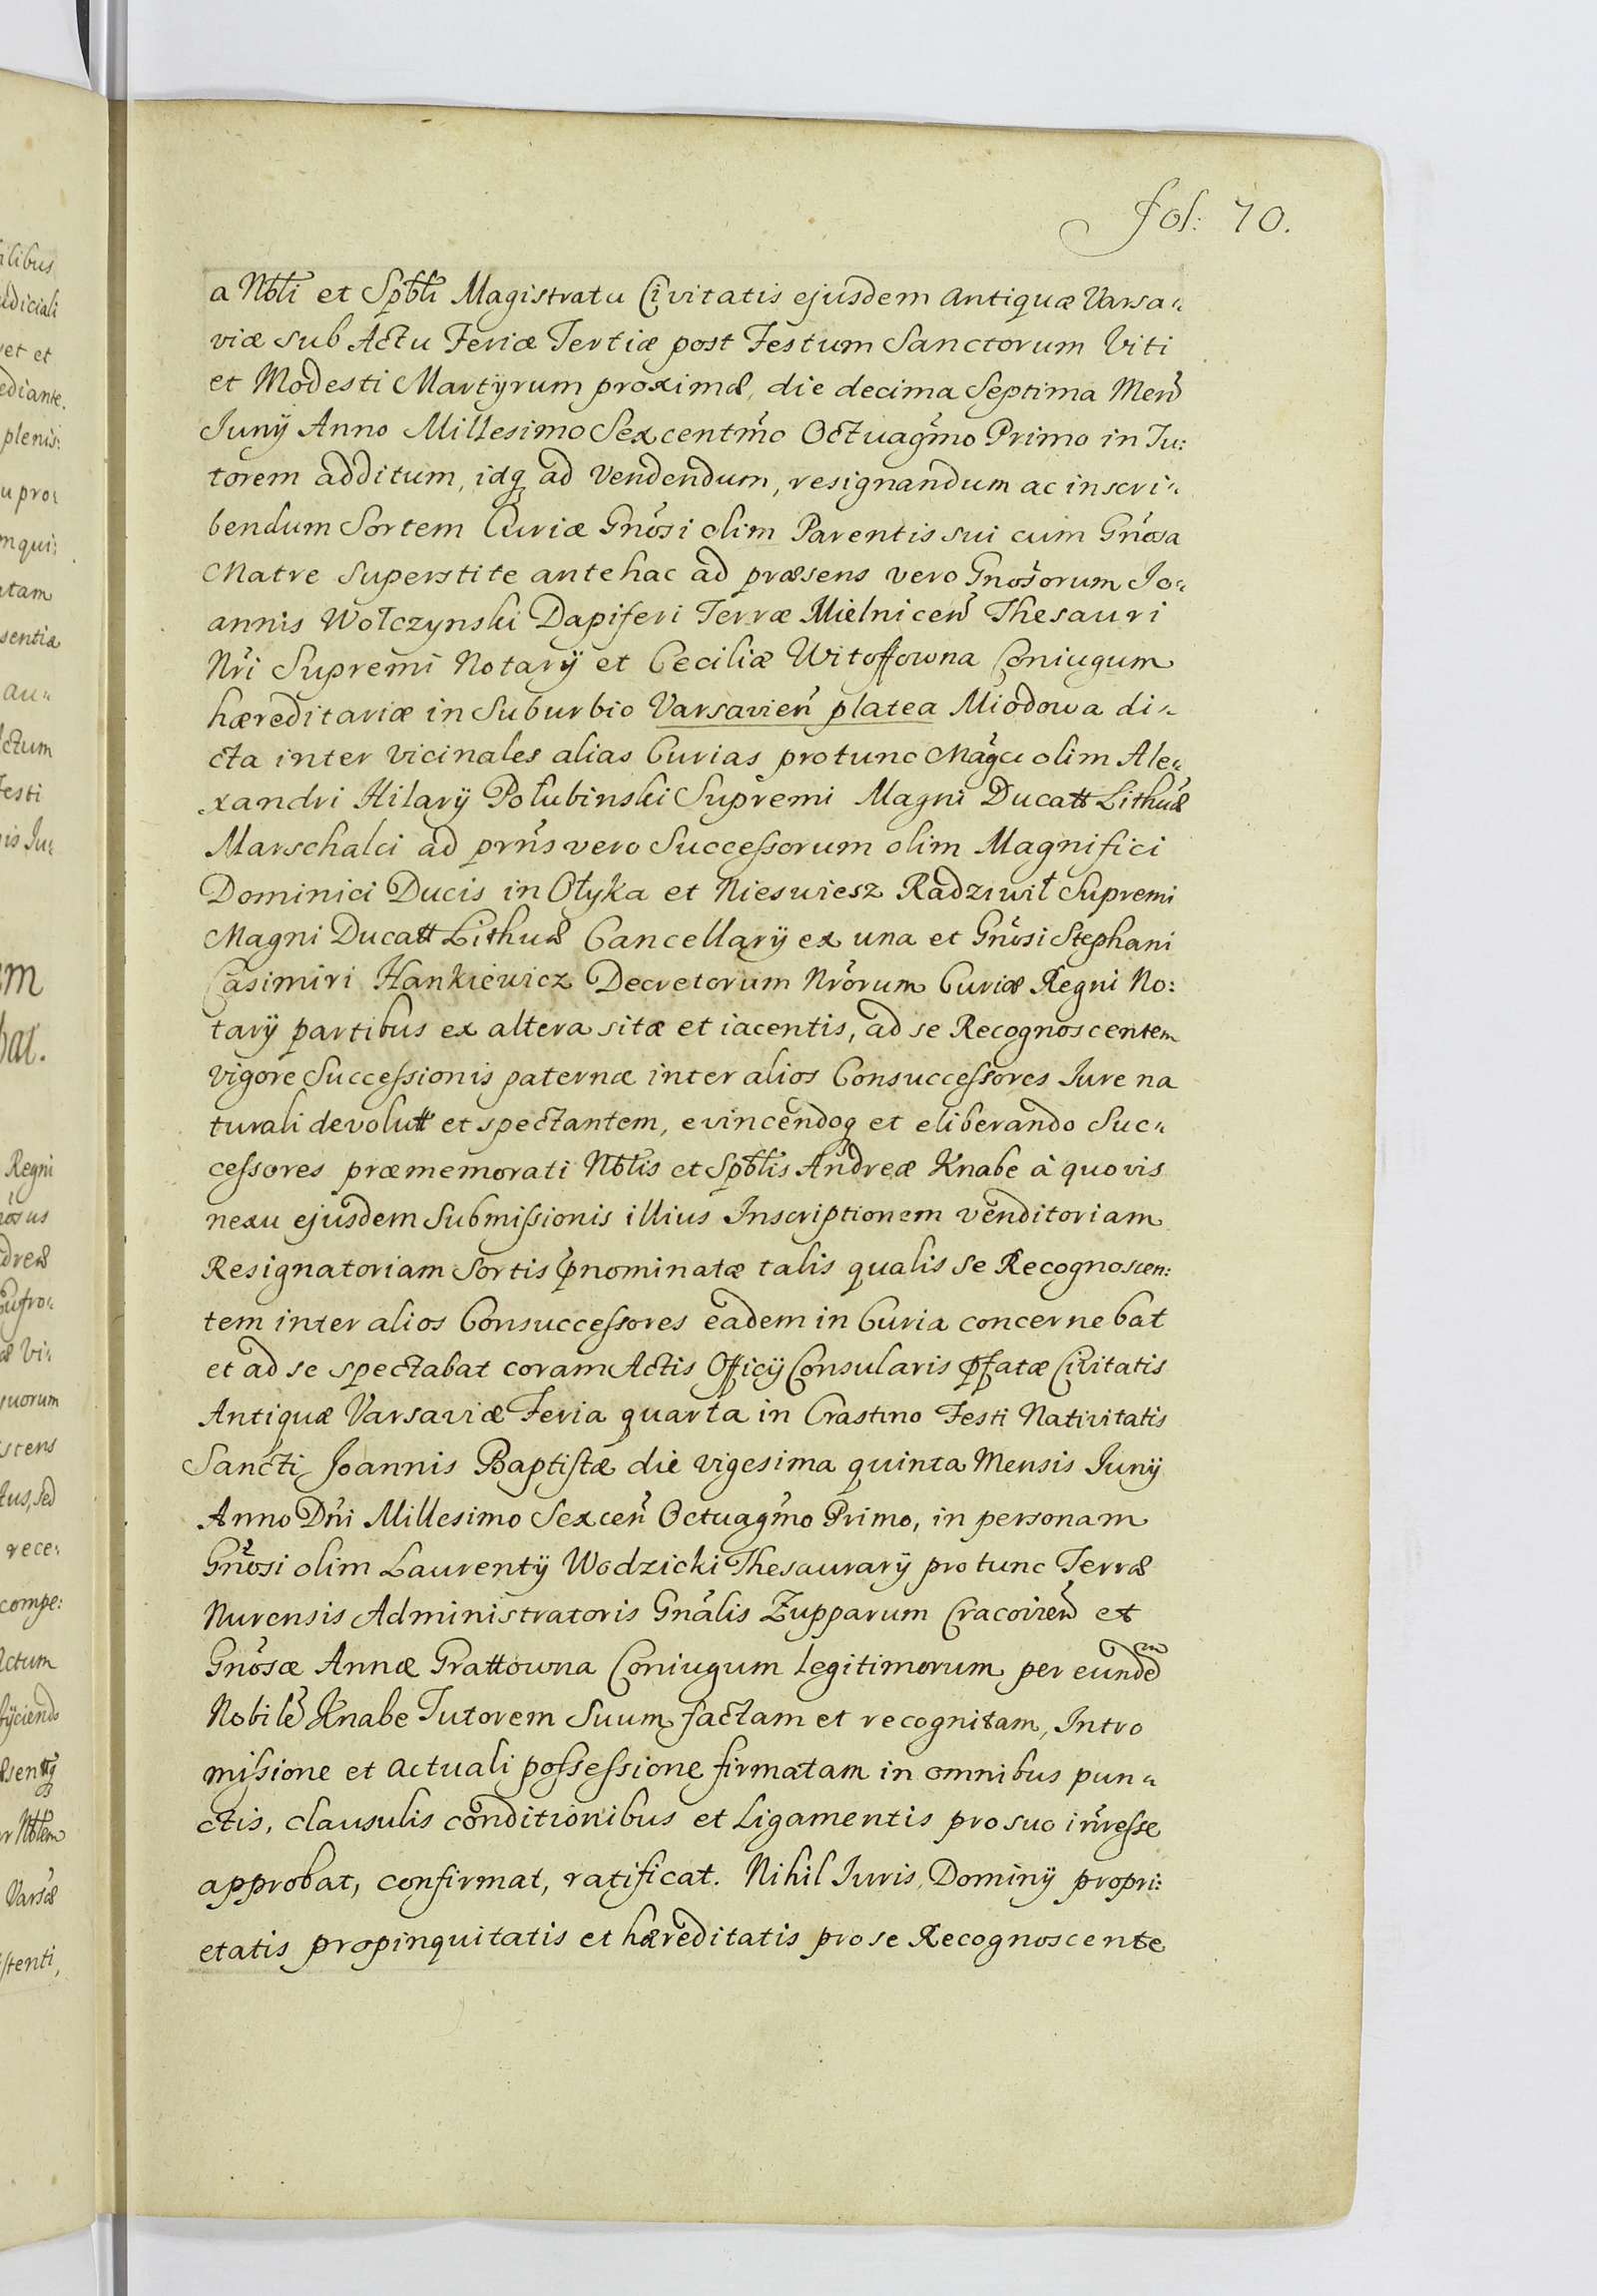 fol: 70.
a Nbli et Spbli Magistratu Civitatis ejusdem Antiquæ Varsa„
viæ sub Actu Feriæ Tertiæ post Festum Sanctorum Viti
et Modesti Martyrum proximæ, die decima Septima Men
Junÿ Anno Millesimo Sexcentmo Octuagmo Primo in Tu:
torem additum, idq ad vendendum, resignandum ac inscri„
bendum Sortem Curiæ Gnosi olim Parentis sui cum Gnosa
Matre Superstite antehac ad præsens vero Gnosorum Jo„
annis Wołczynski Dapiferi Terræ Mielnicen Thesauri
Nri Supremi Notarÿ et Ceciliæ Witoffowna Coniugum
hæreditariæ in Suburbio Varsavien platea Miodowa di„
cta inter vicinales alias Curias protunc Magci olim Ale„
xandri Hilarÿ Połubinski Supremi Magni Ducatt Lithuæ
Marschalci ad prns vero Successorum olim Magnifici
Dominici Ducis in Ołyka et Nieswiesz Radziwił Supremi
Magni Ducatt Lithuæ Cancellarÿ ex una et Gnosi Stephani
Casimiri Hankiewicz Decretorum Nrorum Curiæ Regni No:
tarÿ partibus ex altera sitæ et iacentis, ad se Recognoscentem
vigore Successionis paternæ inter alios Consuccessores Jure na
turali devolutt et spectantem, evincendoq et eliberando Suc„
cessores præmemorati Nblis et Spblis Andreæ Knabe à quovis
nexu ejusdem Submissionis illius Inscriptionem venditoriam
Resignatoriam Sortis pnominatæ talis qualis se Recognoscen:
tem inter alios Consuccessores eadem in Curia concernebat
et ad se spectabat coram Actis Officÿ Consularis pfatæ Civitatis
Antiquæ Varsaviæ Feria quarta in Crastino Festi Nativitatis
Sancti Joannis Baptistæ die vigesima quinta Mensis Junÿ
Anno Dni Millesimo Sexcen Octuagmo Primo, in personam
Gnosi olim Laurentÿ Wodzicki Thesaurarÿ pro tunc Terræ
Nurensis Administratoris Gnalis Zupparum Cracovien et
Gnosæ Annæ Grattowna Coniugum legitimorum per eunden
Nobile Knabe Tutorem Suum factam et recognitam, Intro
missione et actuali possessione firmatam in omnibus pun„
ctis, clausulis conditionibus et Ligamentis pro suo inresse
approbat, confirmat, ratificat. Nihil Juris, Dominÿ propri:
etatis propinquitatis et hæreditatis pro se Recognoscente